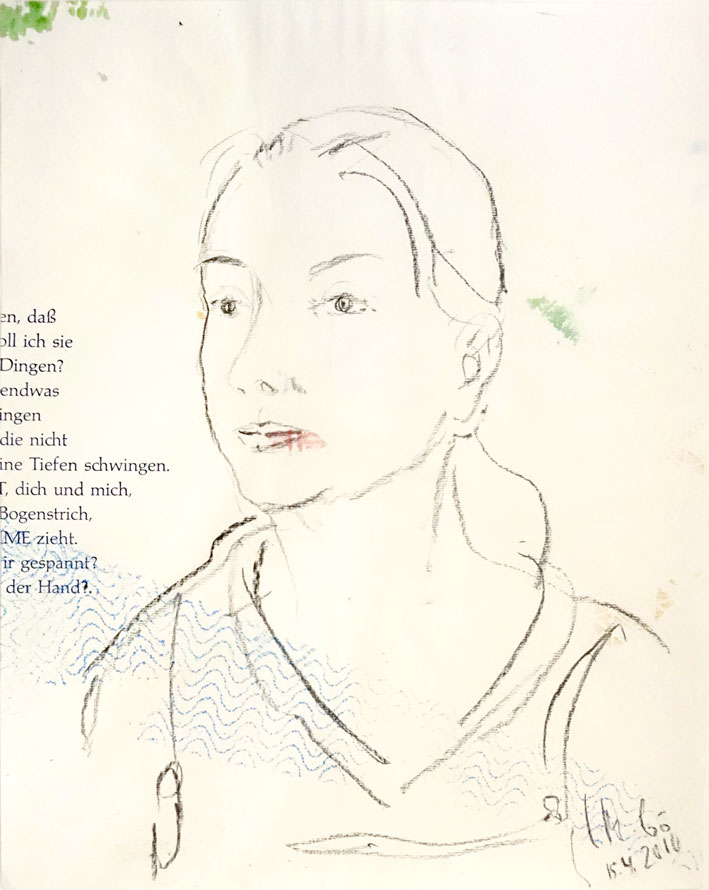 en, daß
oll ich sie
Dingen?
endwas
ingen
die nicht
ine Tiefen schwingen.
T, dich und mich,
Bogenstrich,
ME zieht.
ir gespannt?
der Hand?.
15.4.2010